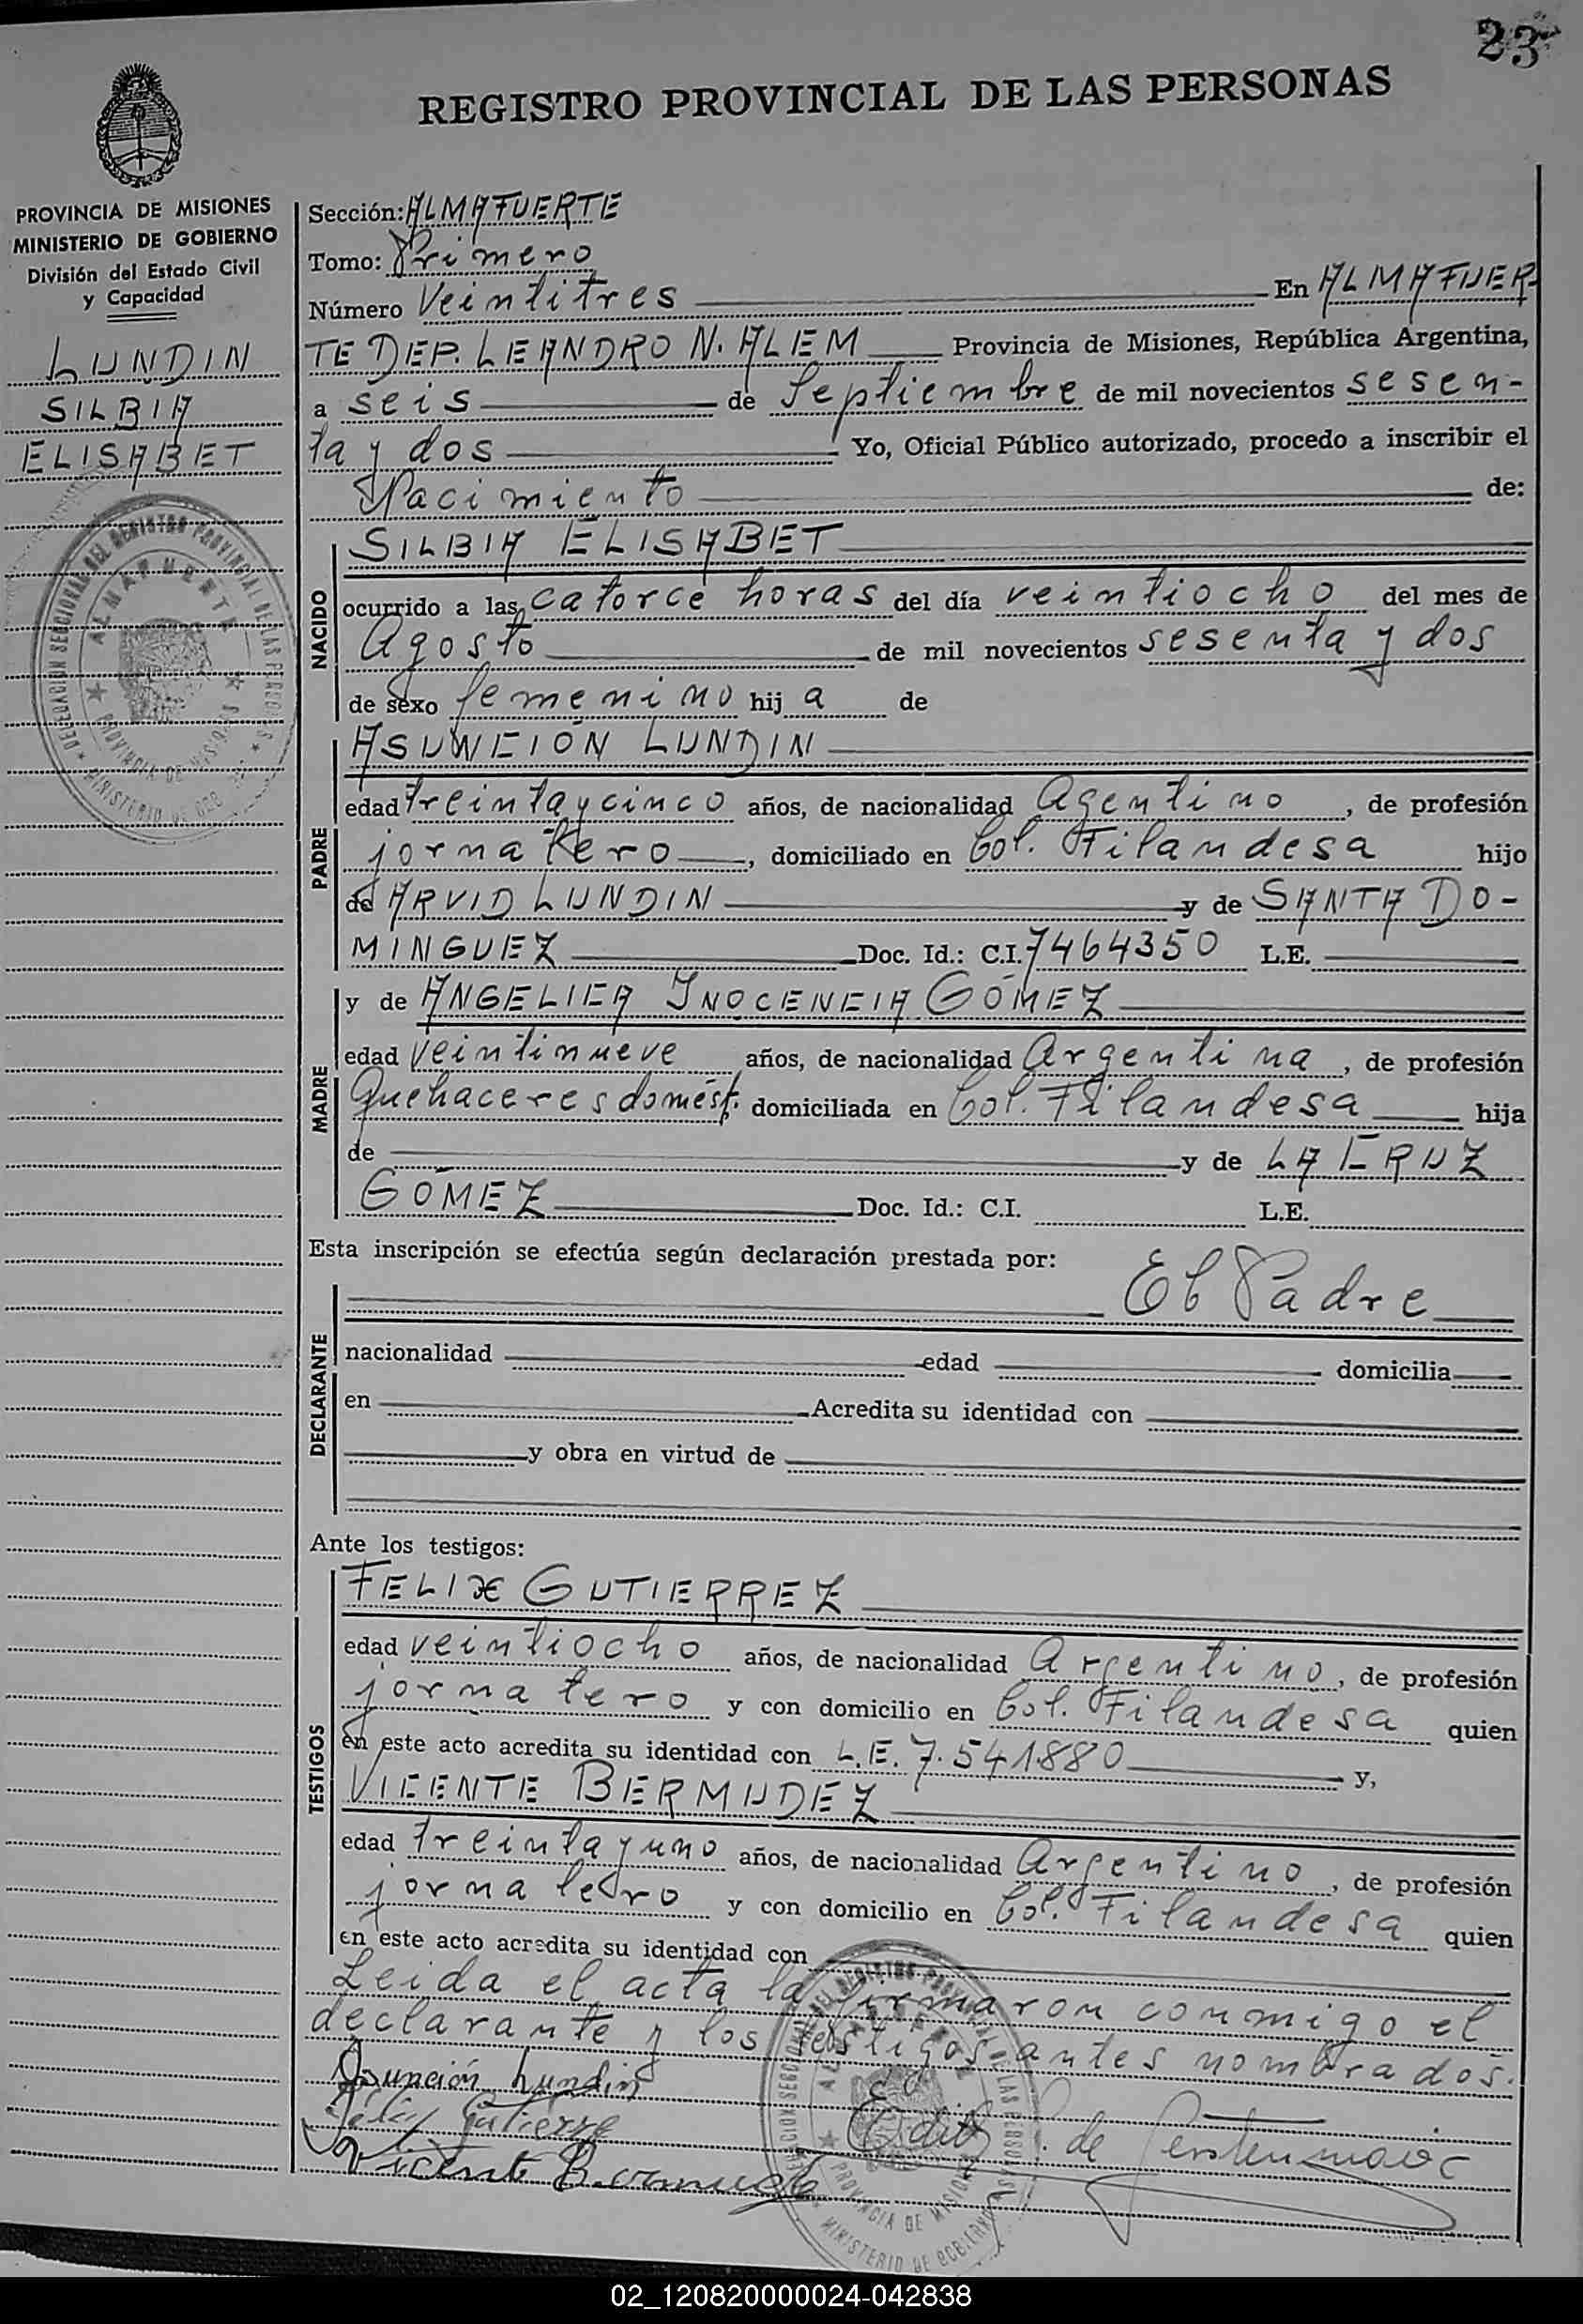 23
REGISTRO PROVINCIAL DE LAS PERSONAS
PROVINCIA DE MISIONES
MINISTERIO DE GOBIERNO
División del Estado Civil
y Capacidad
LUNDIN
SILBIA
ELISABET
Sección: ALMAFUERTE
Tomo: Primero
Número Veintitres En ALMAFUER-
TE DEP. LEANDRO N. ALEM Provincia de Misiones, República Argentina,
a seis de Septiembre de mil novecientos sesen-
ta y dos Yo, Oficial Público autorizado, procedo a inscribir el
Nacimiento de:
NACIDO
SILBIA ELISABET
ocurrido a las catorce horas del día veintiocho del mes de
Agosto de mil novecientos sesenta y dos
de sexo femenino hij a de
PADRE
ASUNCIÓN LUNDIN
edad treintaycinco años, de nacionalidad Agentino, de profesión
jornalero, domiciliado en Col. Filandesa hijo
de ARVID LUNDIN y de SANTA DO-
MINGUEZ Doc. Id.: C.I. 7464350 L.E.
MADRE
y de ANGELICA INOCENCIA GÓMEZ
edad veintinueve años, de nacionalidad Argentina, de profesión
Quehaceres domést. domiciliada en Col. Filandesa hija
de y de LA CRUZ
GÓMEZ Doc. Id.: C.I. L.E.
Esta inscripción se efectúa según declaración prestada por:
DECLARANTE
El Padre
nacionalidad edad domicilia
en Acredita su identidad con
y obra en virtud de
Ante los testigos:
TESTIGOS
FELIX GUTIERREZ
edad veintiocho años, de nacionalidad Argentino, de profesión
jornalero y con domicilio en Col. Filandesa quien
en este acto acredita su identidad con L.E. 7.541.880 y,
VICENTE BERMUDEZ
edad treinta y uno años, de nacionalidad Argentino, de profesión
jornalero y con domicilio en Col. Filandesa quien
en este acto acredita su identidad con
Leida el acta la firmaron conmigo el
declarante y los testigos antes nombrados.
Asunción Lundin
Felix Gutierrez
Vicente Bermudez
Edith de Gerstenmaier
DELEGACION SECCIONAL DEL REGISTRO PROVINCIAL DE LAS PERSONAS
ALMAFUERTE
PROVINCIA DE MISIONES
MINISTERIO DE GOBIERNO
02_120820000024-042838